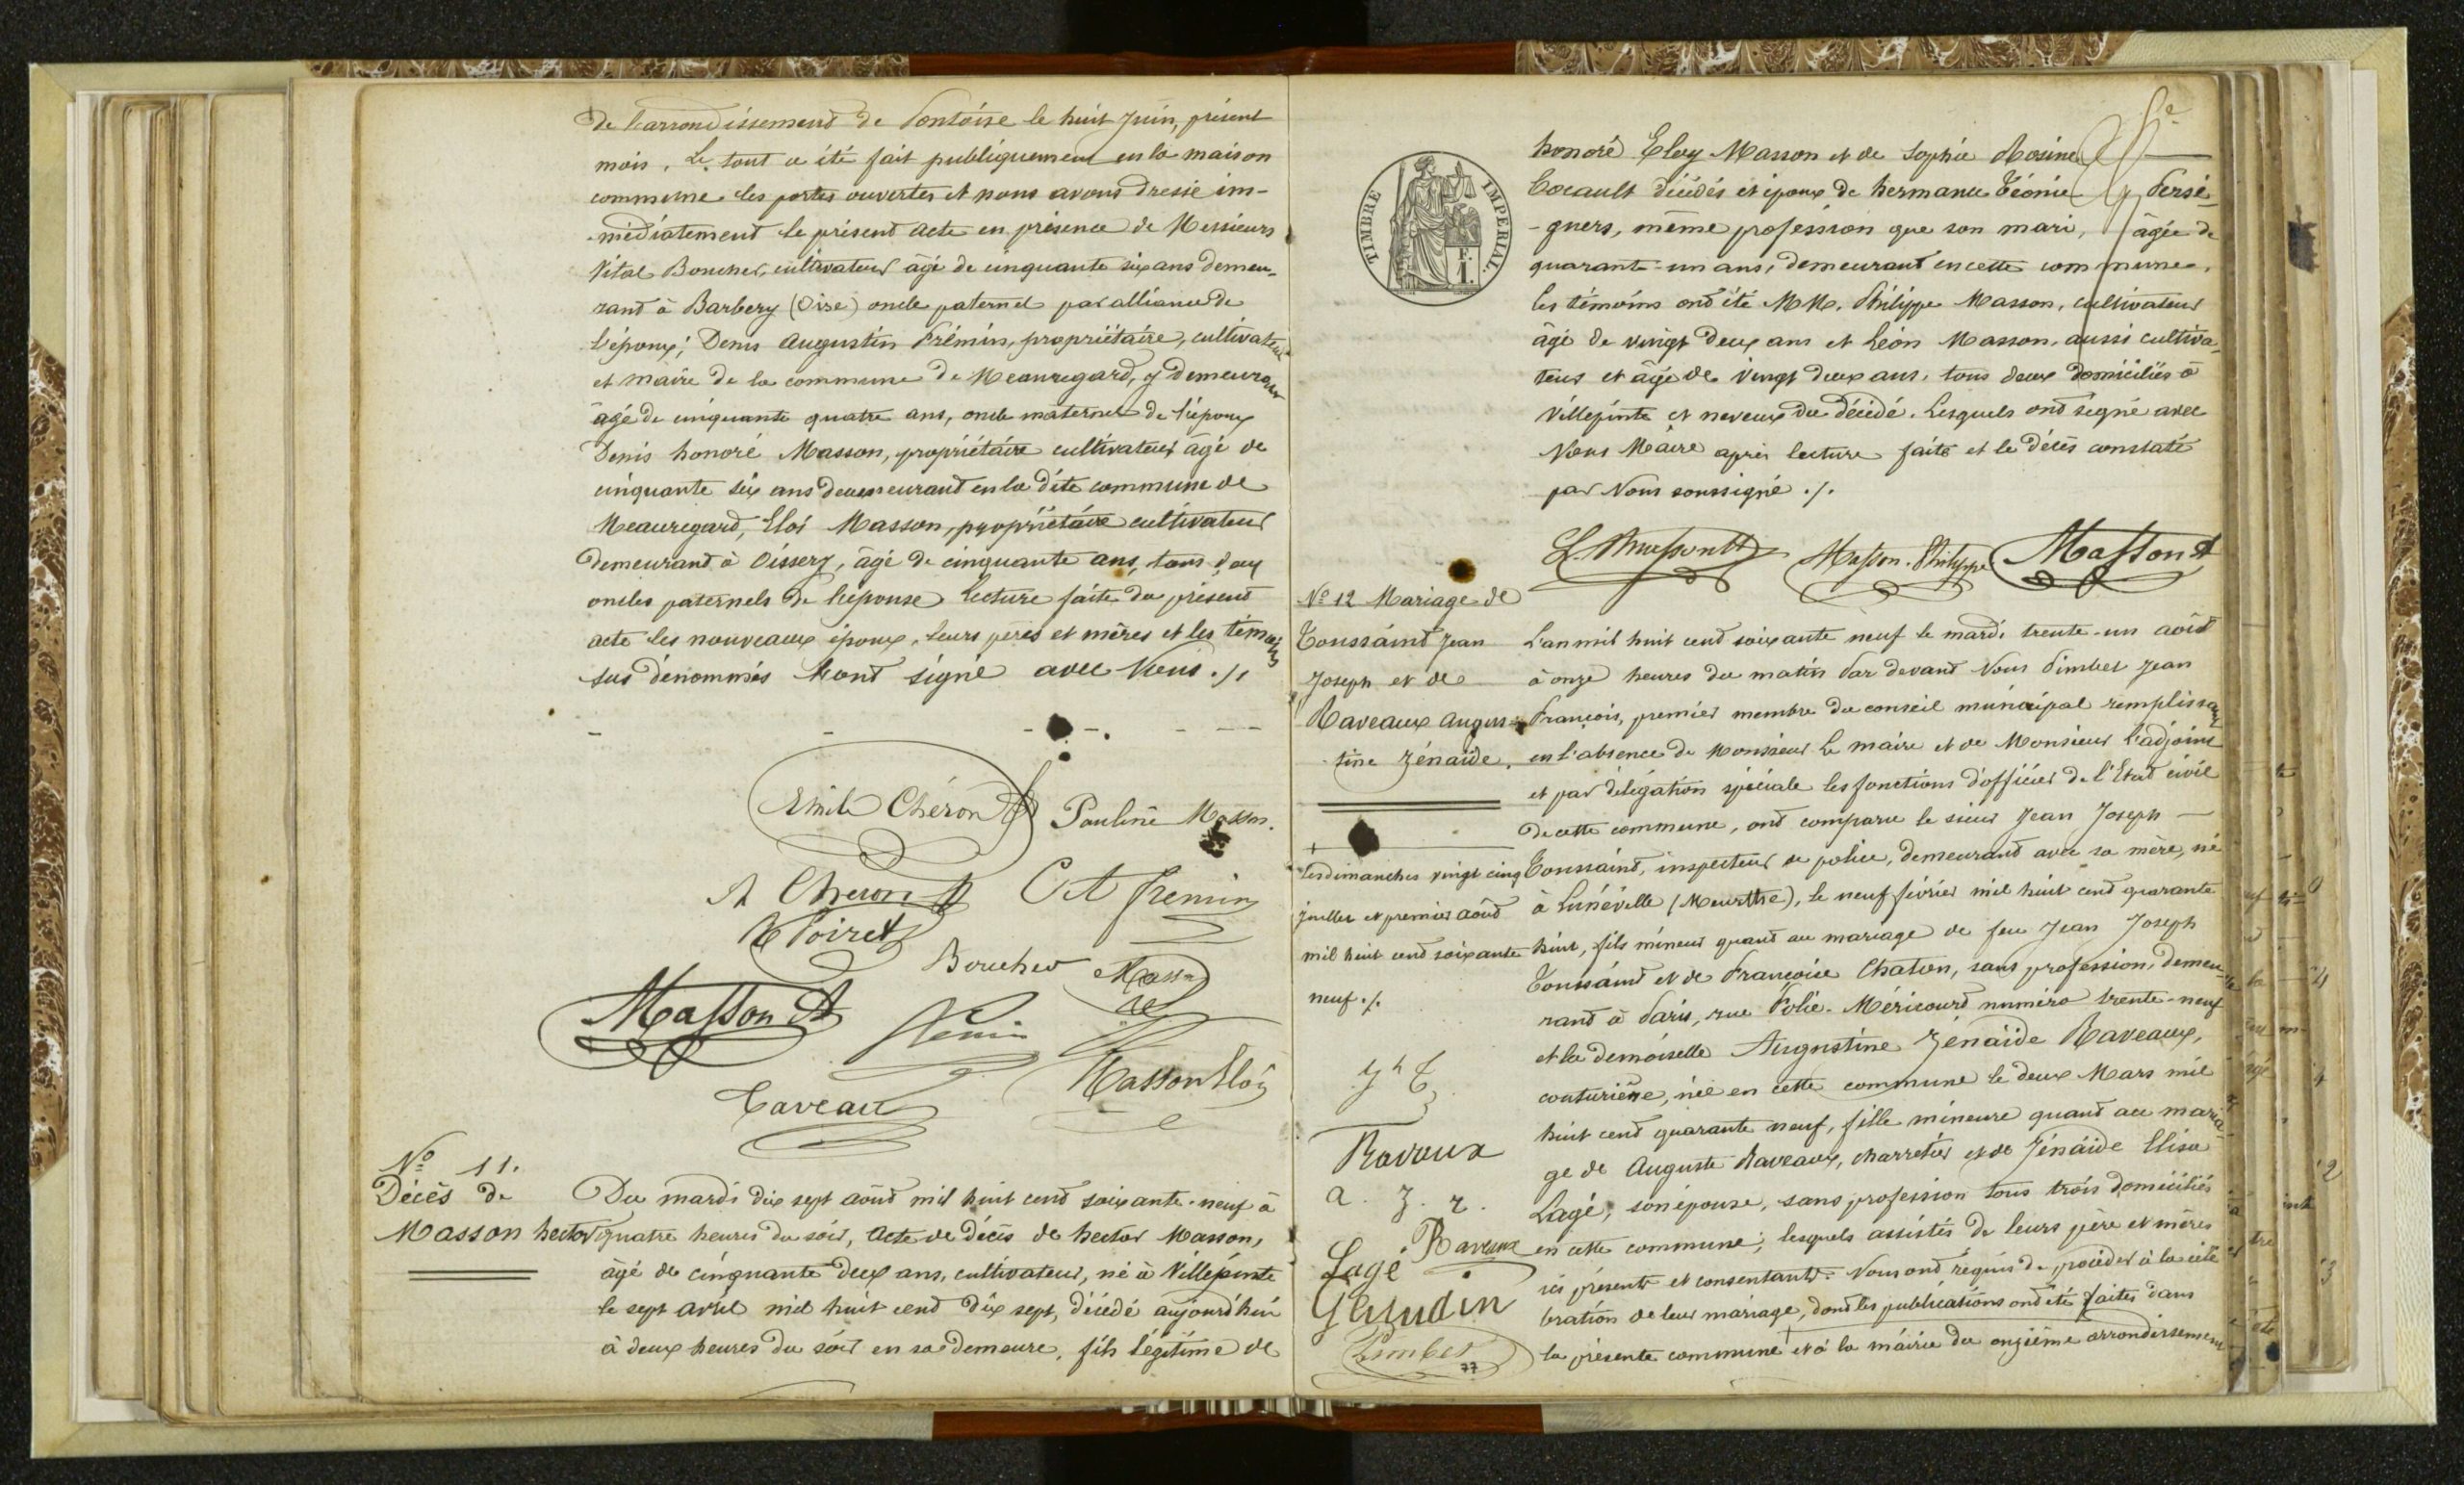 de l'arrondissement de Pontoise le huit Juin, présent
mois. Le tout a été fait publiquement en la maison
commune les portes ouvertes et nous avons dressé im-
-médiatement le présent acte en présence de Messieurs
Vital Boucher, cultivateur âgé de cinquante six ans demeu-
rant à Barbery (Oise) oncle paternel par alliance de
l'époux; Denis Augustin Frémin, propriétaire, cultivateur
et maire de la commune de Meauregard, y demeurant
âgé de cinquante quatre ans, oncle maternel de l'époux
Denis honoré Masson, propriétaire cultivateur âgé de
cinquante six ans demeurant en la dite commune de
Meauregard, Eloi Masson, propriétaire cultivateur
demeurant à Oissery, âgé de cinquante ans, tous deux
oncles paternels de l'épouse Lecture faite du présent
acte les nouveaux époux, leurs pères et mères et les témoins
sus dénommés l'ont signé avec Nous ./.
Emile Chéron Pauline Masson.
A Cheron C A fremin
Poiret
Boucher Masson
Masson A
Masson Eloi
Caveau
No 11.
Décès de
Masson hector
Du mardi dix sept août mil huit cent soixante-neuf à
quatre heures du soir, Acte de décès de hector Masson,
âgé de cinquante deux ans, cultivateur, né à Villepinte
le sept avril mil huit cent dix sept, décédé aujourd'hui
à deux heures du soir en sa demeure, fils légitime de
TIMBRE IMPERIAL.
F.
1.
honoré Eloy Masson et de Sophie Rosine
Cocault décédés et époux de hermance Léonie Persé-
-guers, même profession que son mari, âgée de
quarante-un ans, demeurant en cette commune.
les témoins ont été MM. Philippe Masson, cultivateur
âgé de vingt deux ans et Léon Masson, aussi cultiva-
teur et âgé de vingt deux ans, tous deux domiciliés à
Villepinte et neveux du décédé. Lesquels ont signé avec
Nous Maire après lecture faite et le décès constaté
par Nous soussigné ./.
L. Masson Masson. Philippe Masson A
No 12 Mariage de
Toussaint Jean
Joseph et de
Raveaux Augus-
tine Zénaïde.
L'an mil huit cent soixante neuf le mardi trente-un août
à onze heures du matin Par devant Nous Pimbet Jean
François, premier membre du conseil municipal remplissant
en l'absence de Monsieur le maire et de Monsieur l'adjoint
et par délégation spéciale les fonctions d'officier de l'Etat civil
de cette commune, ont comparu le sieur Jean Joseph
Toussaint, inspecteur de police, demeurant avec sa mère, né
à Lunéville (Meurthe), le neuf février mil huit cent quarante
huit, fils mineur quant au mariage de feu Jean Joseph
Toussaint et de Françoise Chaton, sans profession, demeu-
rant à Paris, rue Folie-Méricourt numéro trente-neuf
et la demoiselle Augustine Zénaïde Raveaux,
couturière, née en cette commune le deux Mars mil
huit cent quarante neuf, fille mineure quant au maria-
ge de Auguste Raveaux, charretier et de Zénaïde Elisa
Lagé, son épouse, sans profession tous trois domiciliés
en cette commune; lesquels assistés de leurs père et mères
ici présents et consentants. Nous ont requis de procéder à la célé
bration de leur mariage, dont les publications ont été faites dans
la présente commune et à la mairie du onzième arrondissement
les dimanches vingt cinq
juillet et premier août
mil huit cent soixante
neuf ./.
Jh T
Ravaux
a. z. r.
Raveaux
Lagé
Pimbet
77